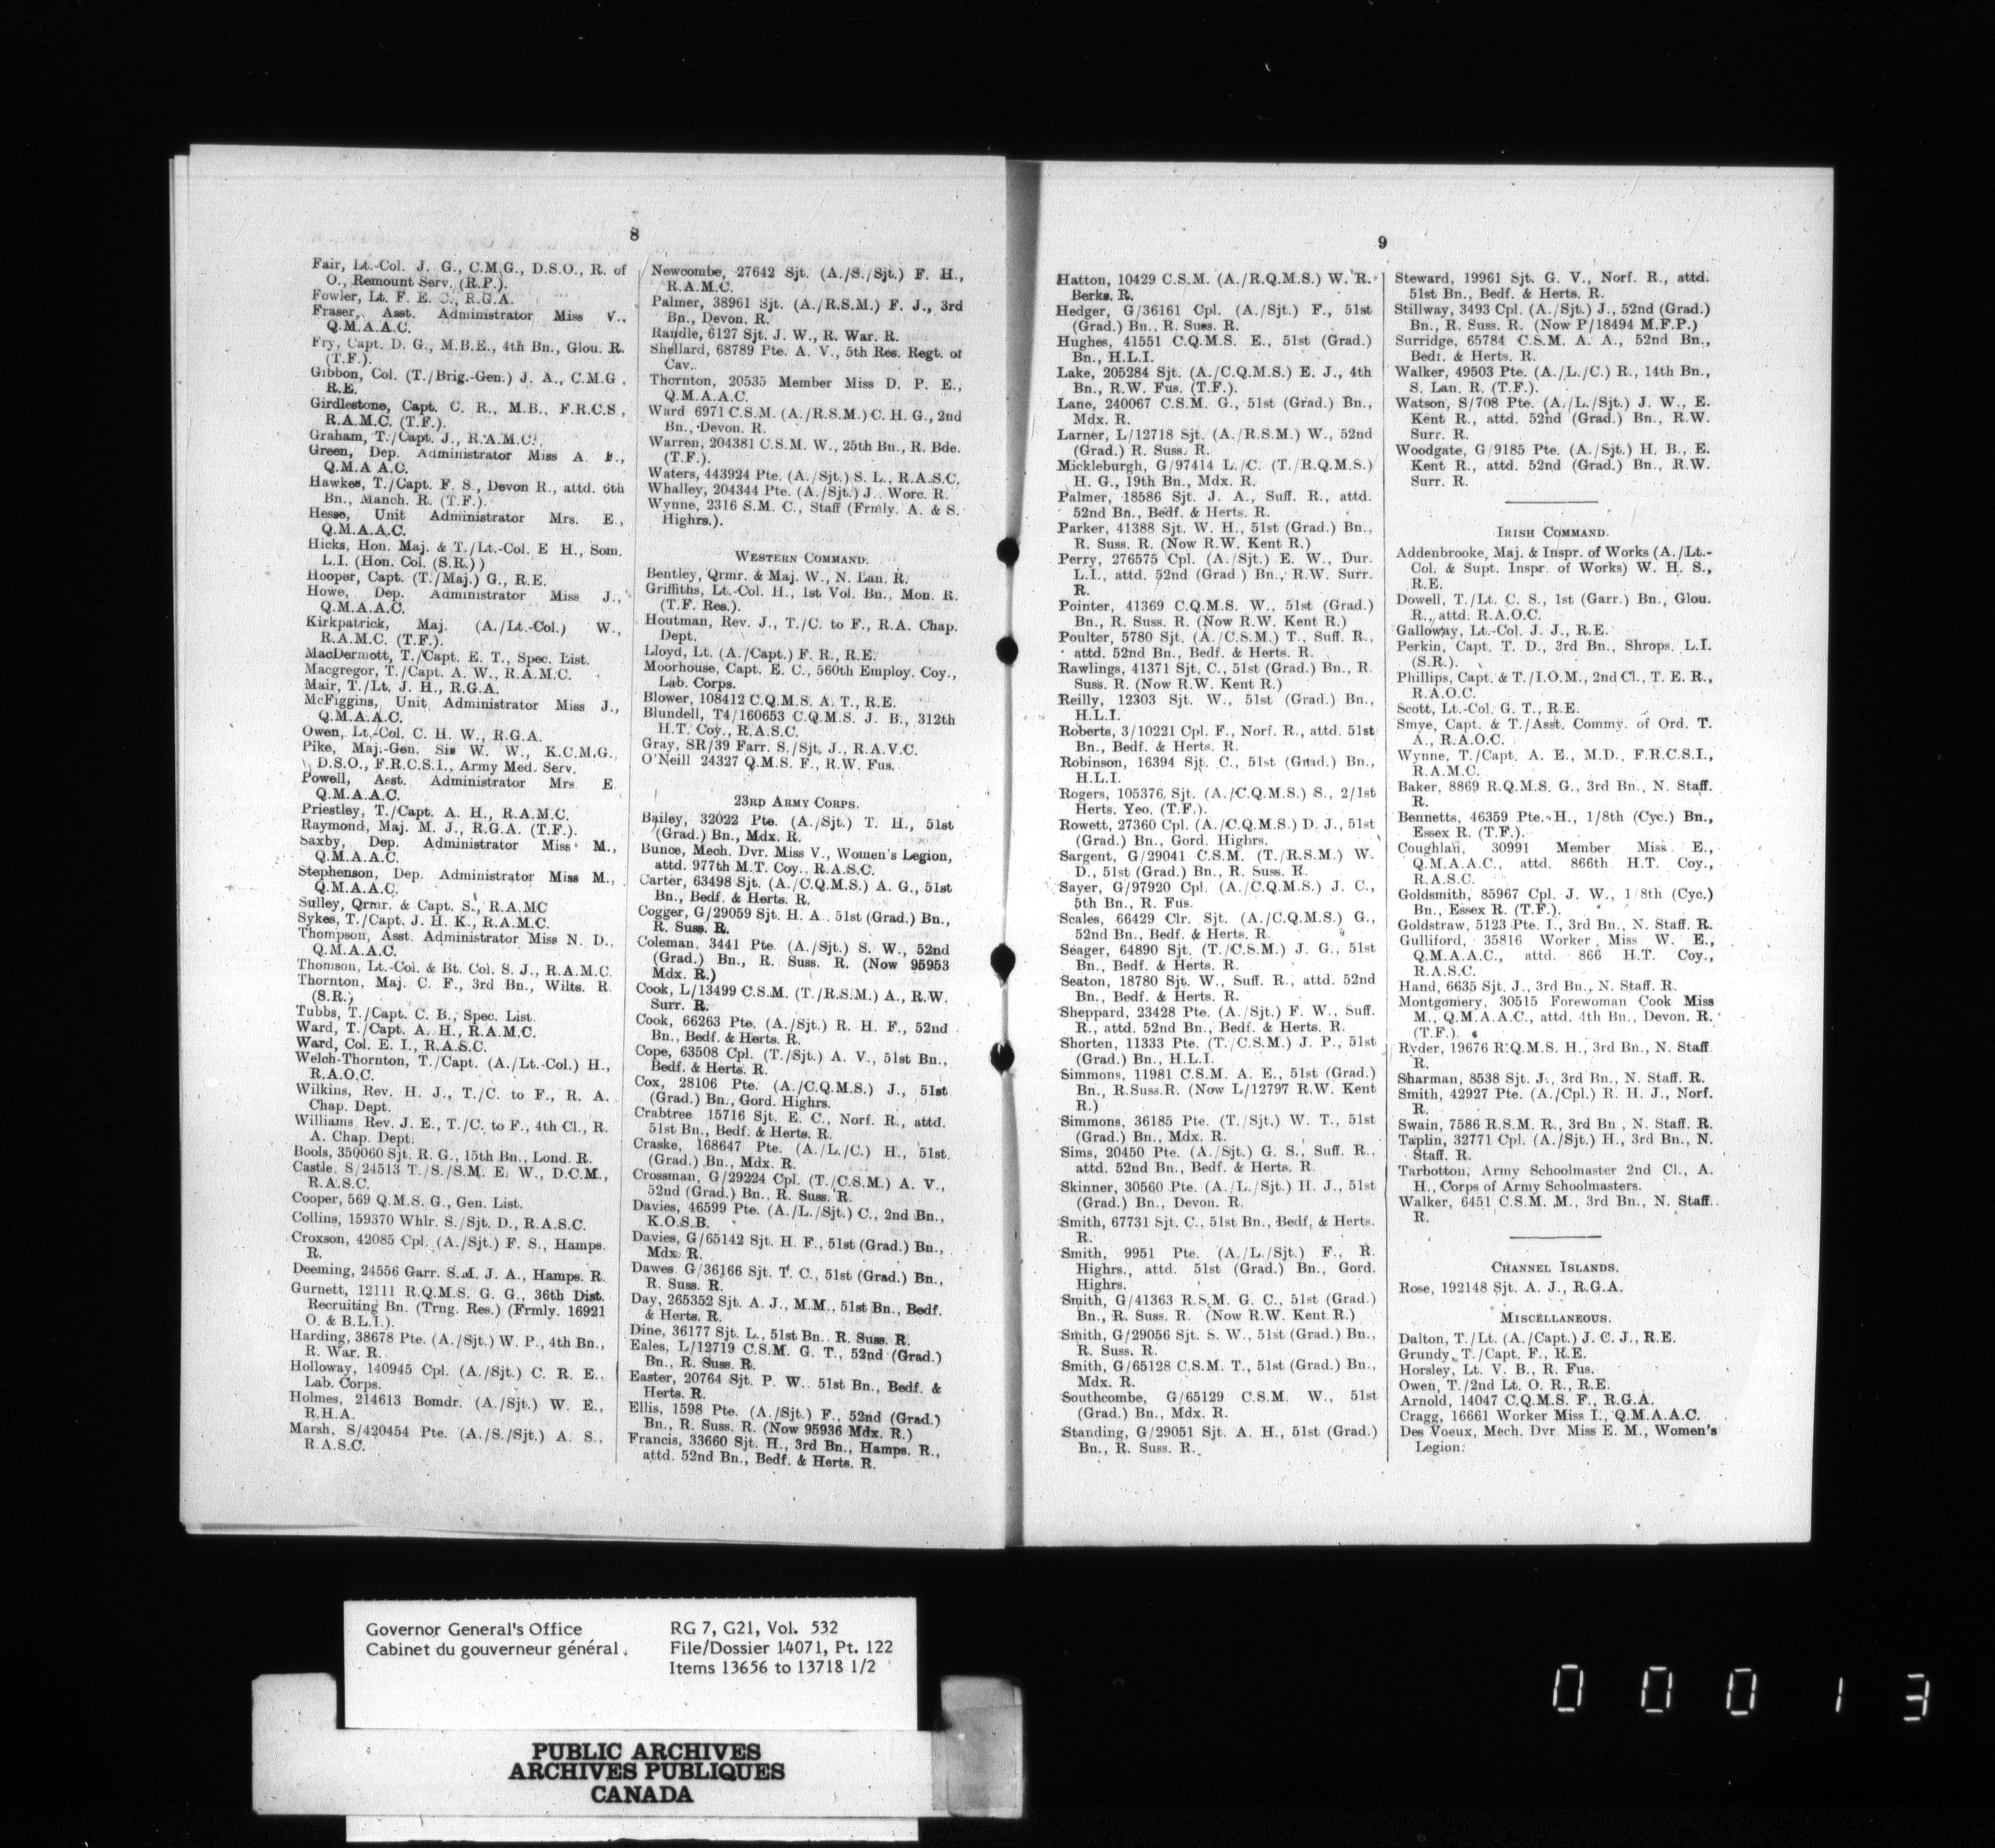 8
Fair, Lt.-Col. J. G., C.M.G., D.S.O., R. of
O., Remount Serv. (R.P.).
Fowler, Lt. F. E. C., R.G.A.
Fraser, Asst. Administrator Miss V.,
Q.M.A.A.C.
Fry, Capt. D. G., M.B.E., 4th Bn., Glou. R.
(T.F.).
Gibbon, Col. (T./Brig.-Gen.) J. A., C.M.G.,
R.E.
Girdlestone, Capt. C. R., M.B., F.R.C.S.,
R.A.M.C. (T.F.).
Graham, T./Capt. J., R.A.M.C.
Green, Dep. Administrator Miss A.
Q.M.A A.C.
Hawkes, T./Capt. F. S., Devon R., attd. 6th
Bn., Manch. R. (T.F.).
Hesse, Unit Administrator Mrs. E.,
Q.M.A.A.C.
Hicks, Hon. Maj. & T./Lt.-Col. E H., Som.
L.I. (Hon. Col. (S.R.) )
Hooper, Capt. (T./Maj.) G., R.E.
Howe, Dep. Administrator Miss J.,
Q.M.A.A.C.
Kirkpatrick, Maj. (A./Lt.-Col.) W.,
R.A.M.C. (T.F.).
MacDermott, T./Capt. E. T., Spec. List.
Macgregor, T./Capt. A. W., R.A.M.C.
Mair, T./Lt. J. H., R.G.A.
McFiggins, Unit Administrator Miss J.,
Q.M.A.A.C.
Owen, Lt.-Col. C. H. W., R.G.A.
Pike, Maj.-Gen. Sir W. W., K.C.M.G.,
D.S.O., F.R.C.S.I., Army Med. Serv.
Powell, Asst. Administrator Mrs E
Q.M.A.A.C.
Priestley, T./Capt. A. H., R.A.M.C.
Raymond, Maj. M. J., R.G.A. (T.F.).
Saxby, Dep. Administrator Miss M.,
Q.M.A.A.C.
Stephenson, Dep. Administrator Miss M.,
Q.M.A.A.C.
Sulley, Qrmr. & Capt. S., R.A.MC
Sykes, T./Capt. J. H. K., R.A.M.C.
Thompson, Asst. Administrator Miss N. D.,
Q.M.A.A.C.
Thomson, Lt.-Col. & Bt. Col. S. J., R.A.M.C.
Thornton, Maj. C. F., 3rd Bn., Wilts. R
(S.R.)
Tubbs, T./Capt. C. B., Spec. List.
Ward, T./Capt. A. H., R.A.M.C.
Ward, Col. E. I., R.A.S.C.
Welch-Thornton, T./Capt. (A./Lt.-Col.) H.,
R.A.O.C.
Wilkins, Rev. H. J., T./C. to F., R. A.
Chap. Dept.
Williams Rev. J. E., T./C. to F., 4th Cl., R.
A. Chap. Dept.
Bools, 350060 Sjt. R. G., 15th Bn., Lond. R.
Castle, S/24513 T./S./S.M. E. W., D.C.M.,
R.A.S.C.
Cooper, 569 Q.M.S. G., Gen. List.
Collins, 159370 Whlr. S./Sjt. D., R.A.S.C.
Croxson, 42085 Cpl. (A./Sjt.) F. S., Hamps.
R.
Deeming, 24556 Garr. S.M. J. A., Hamps. R.
Gurnett, 12111 R.Q.M.S. G. G., 36th Dist.
Recruiting Bn. (Trng. Res.) (Frmly. 16921
O. & B.L.I.).
Harding, 38678 Pte. (A./Sjt.) W. P., 4th Bn.,
R. War. R.
Holloway, 140945 Cpl. (A./Sjt.) C. R. E.,
Lab. Corps.
Holmes, 214613 Bomdr. (A./Sjt.) W. E.,
R.H.A.
Marsh, S/420454 Pte. (A./S./Sjt.) A. S.,
R.A.S.C.
Newcombe, 27642 Sjt. (A./S./Sjt.) F. H.,
R.A.M.C.
Palmer, 38961 Sjt. (A./R.S.M.) F. J., 3rd
Bn., Devon. R.
Randle, 6127 Sjt. J. W., R. War. R.
Shellard, 68789 Pte. A. V., 5th Res. Regt. of
Cav.
Thornton, 20535 Member Miss D. P. E.,
Q.M.A.A.C.
Ward 6971 C.S.M. (A./R.S.M.) C. H. G., 2nd
Bn., Devon. R.
Warren, 204381 C.S.M. W., 25th Bn., R. Bde.
(T.F.).
Waters, 443924 Pte. (A./Sjt.) S. L., R.A.S.C.
Whalley, 204344 Pte. (A./Sjt.) J. Worc. R.
Wynne, 2316 S.M. C., Staff (Frmly. A. & S.
Highrs.).
WESTERN COMMAND.
Bentley, Qrmr. & Maj. W., N. Lan. R.
Griffiths, Lt.-Col. H., 1st Vol. Bn., Mon. R.
(T.F. Res.).
Houtman, Rev. J., T./C. to F., R.A. Chap.
Dept.
Lloyd, Lt. (A./Capt.) F. R., R.E.
Moorhouse, Capt. E. C., 560th Employ. Coy.,
Lab. Corps.
Blower, 108412 C.Q.M.S. A. T., R.E.
Blundell, T4/160653 C.Q.M.S. J. B., 312th
H.T. Coy., R.A.S.C.
Gray, SR/39 Farr. S./Sjt. J., R.A.V.C.
O'Neill 24327 Q.M.S. F., R.W. Fus.
23RD ARMY CORPS.
Bailey, 32022 Pte. (A./Sjt.) T. H., 51st
(Grad.) Bn., Mdx. R.
Bunce, Mech. Dvr. Miss V., Women's Legion,
attd. 977th M.T. Coy., R.A.S.C.
Carter, 63498 Sjt. (A./C.Q.M.S.) A. G., 51st
Bn., Bedf. & Herts. R.
Cogger, G/29059 Sjt. H. A., 51st (Grad.) Bn.,
R. Suss. R.
Coleman, 3441 Pte. (A./Sjt.) S. W., 52nd
(Grad.) Bn., R. Suss. R. (Now 95953
Mdx. R.)
Cook, L/13499 C.S.M. (T./R.S.M.) A., R.W.
Surr. R.
Cook, 66263 Pte. (A./Sjt.) R. H. F., 52nd
Bn., Bedf. & Herts. R.
Cope, 63508 Cpl. (T./Sjt.) A. V., 51st Bn.,
Bedf. & Herts. R.
Cox, 28106 Pte. (A./C.Q.M.S.) J., 51st
(Grad.) Bn., Gord. Highrs.
Crabtree 15716 Sjt. E. C., Norf. R., attd.
51st Bn., Bedf. & Herts. R.
Craske, 168647 Pte. (A./L./C.) H., 51st
(Grad.) Bn., Mdx. R.
Crossman, G/29224 Cpl. (T./C.S.M.) A. V.,
52nd (Grad.) Bn., R. Suss. R.
Davies, 46599 Pte. (A./L./Sjt.) C., 2nd Bn.,
K.O.S.B.
Davies, G/65142 Sjt. H. F., 51st (Grad.) Bn.,
Mdx. R.
Dawes G/36166 Sjt. T. C., 51st (Grad.) Bn.,
R. Suss. R.
Day, 265352 Sjt. A. J., M.M., 51st Bn., Bedf.
& Herts. R.
Dine, 36177 Sjt. L., 51st Bn., R. Suss. R.
Eales, L/12719 C.S.M. G. T., 52nd (Grad.)
Bn., R. Suss. R.
Easter, 20764 Sjt. P. W., 51st Bn., Bedf. &
Herts. R.
Ellis, 1598 Pte. (A./Sjt.) F., 52nd (Grad.)
Bn., R. Suss. R. (Now 95936 Mdx. R.)
Francis, 33660 Sjt. H., 3rd Bn., Hamps. R.,
attd. 52nd Bn., Bedf. & Herts. R.
9
Hatton, 10429 C.S.M. (A./R.Q.M.S.) W. R.
Berks. R.
Hedger, G/36161 Cpl. (A./Sjt.) F., 51st
(Grad.) Bn., R. Suss. R.
Hughes, 41551 C.Q.M.S. E., 51st (Grad.)
Bn., H.L.I.
Lake, 205284 Sjt. (A./C.Q.M.S.) E. J., 4th
Bn., R.W. Fus. (T.F.).
Lane, 240067 C.S.M. G., 51st (Grad.) Bn.,
Mdx. R.
Larner, L/12718 Sjt. (A./R.S.M.) W., 52nd
(Grad.) R. Suss. R.
Mickleburgh, G/97414 L./C. (T./R.Q.M.S.)
H. G., 19th Bn., Mdx. R.
Palmer, 18586 Sjt. J. A., Suff. R., attd.
52nd Bn., Bedf. & Herts. R.
Parker, 41388 Sjt. W. H., 51st (Grad.) Bn.,
R. Suss. R. (Now R.W. Kent R.)
Perry, 276575 Cpl. (A./Sjt.) E. W., Dur.
L.I., attd. 52nd (Grad ) Bn., R.W. Surr.
R.
Pointer, 41369 C.Q.M.S. W., 51st (Grad.)
Bn., R. Suss. R. (Now R.W. Kent R.)
Poulter, 5780 Sjt. (A./C.S.M.) T., Suff. R.,
attd. 52nd Bn., Bedf. & Herts. R.
Rawlings, 41371 Sjt. C., 51st (Grad.) Bn., R.
Suss. R. (Now R.W. Kent R.)
Reilly, 12303 Sjt. W., 51st (Grad.) Bn.,
H.L.I.
Roberts, 3/10221 Cpl. F., Norf. R., attd. 51st
Bn., Bedf. & Herts. R.
Robinson, 16394 Sjt. C., 51st (Grad.) Bn.,
H.L.I.
Rogers, 105376 Sjt. (A./C.Q.M.S.) S., 2/1st
Herts. Yeo. (T.F.).
Rowett, 27360 Cpl. (A./C.Q.M.S.) D. J., 51st
(Grad.) Bn., Gord. Highrs.
Sargent, G/29041 C.S.M. (T./R.S.M.) W.
D., 51st (Grad.) Bn., R. Suss. R.
Sayer, G/97920 Cpl. (A./C.Q.M.S.) J. C.,
5th Bn., R. Fus.
Scales, 66429 Clr. Sjt. (A./C.Q.M.S.) G.,
52nd Bn., Bedf. & Herts. R.
Seager, 64890 Sjt. (T./C.S.M.) J. G., 51st
Bn., Bedf. & Herts. R.
Seaton, 18780 Sjt. W., Suff. R., attd. 52nd
Bn., Bedf. & Herts. R.
Sheppard, 23428 Pte. (A./Sjt.) F. W., Suff.
R., attd. 52nd Bn., Bedf. & Herts. R.
Shorten, 11333 Pte. (T./C.S.M.) J. P., 51st
(Grad.) Bn., H.L.I.
Simmons, 11981 C.S.M. A. E., 51st (Grad.)
Bn., R.Suss.R. (Now L/12797 R.W. Kent
R.)
Simmons, 36185 Pte. (T./Sjt.) W. T., 51st
(Grad.) Bn., Mdx. R.
Sims, 20450 Pte. (A./Sjt.) G. S., Suff. R.,
attd. 52nd Bn., Bedf. & Herts. R.
Skinner, 30560 Pte. (A./L./Sjt.) H. J., 51st
(Grad.) Bn., Devon. R.
Smith, 67731 Sjt. C., 51st Bn., Bedf. & Herts.
R.
Smith, 9951 Pte. (A./L./Sjt.) F., R.
Highrs., attd. 51st (Grad.) Bn., Gord.
Highrs.
Smith, G/41363 R.S.M. G. C., 51st (Grad.)
Bn., R. Suss. R. (Now R.W. Kent R.)
Smith, G/29056 Sjt. S. W., 51st (Grad.) Bn.,
R. Suss. R.
Smith, G/65128 C.S.M. T., 51st (Grad.) Bn.,
Mdx. R.
Southcombe, G/65129 C.S.M. W., 51st
(Grad.) Bn., Mdx. R.
Standing, G/29051 Sjt. A. H., 51st (Grad.)
Bn., R. Suss. R.
Steward, 19961 Sjt. G. V., Norf. R., attd.
51st Bn., Bedf. & Herts. R.
Stillway, 3493 Cpl. (A./Sjt.) J., 52nd (Grad.)
Bn., R. Suss. R. (Now P/18494 M.F.P.)
Surridge, 65784 C.S.M. A. A., 52nd Bn.,
Bedf. & Herts. R.
Walker, 49503 Pte. (A./L./C.) R., 14th Bn.,
S. Lan. R. (T.F.).
Watson, S/708 Pte. (A./L./Sjt.) J. W., E.
Kent R., attd. 52nd (Grad.) Bn., R.W.
Surr. R.
Woodgate, G/9185 Pte. (A./Sjt.) H. B., E.
Kent R., attd. 52nd (Grad.) Bn., R.W.
Surr. R.
IRISH COMMAND.
Addenbrooke, Maj. & Inspr. of Works (A./Lt.-
Col. & Supt. Inspr. of Works) W. H. S.,
R.E.
Dowell, T./Lt. C. S., 1st (Garr.) Bn., Glou.
R., attd. R.A.O.C.
Galloway, Lt.-Col. J. J., R.E.
Perkin, Capt. T. D., 3rd Bn., Shrops. L.I.
(S.R.).
Phillips, Capt. & T./I.O.M., 2nd Cl., T. E. R.,
R.A.O.C.
Scott, Lt.-Col. G. T., R.E.
Smye, Capt. & T./Asst. Commy. of Ord. T.
A., R.A.O.C.
Wynne, T./Capt. A. E., M.D., F.R.C.S.I.,
R.A.M.C.
Baker, 8869 R.Q.M.S. G., 3rd Bn., N. Staff.
R.
Bennetts, 46359 Pte. H., 1/8th (Cyc.) Bn.,
Essex R. (T.F.).
Coughlan, 30991 Member Miss E.,
Q.M.A.A.C., attd. 866th H.T. Coy.,
R.A.S.C.
Goldsmith, 85967 Cpl. J. W., 1/8th (Cyc.)
Bn., Essex R. (T.F.).
Goldstraw, 5123 Pte. I., 3rd Bn., N. Staff. R.
Gulliford, 35816 Worker Miss W. E.,
Q.M.A.A.C., attd. 866 H.T. Coy.,
R.A.S.C.
Hand, 6635 Sjt. J., 3rd Bn., N. Staff. R.
Montgomery, 30515 Forewoman Cook Miss
M., Q.M.A.A.C., attd. 4th Bn., Devon. R.
(T.F.).
Ryder, 19676 R.Q.M.S. H., 3rd Bn., N. Staff.
R.
Sharman, 8538 Sjt. J., 3rd Bn., N. Staff. R.
Smith, 42927 Pte. (A./Cpl.) R. H. J., Norf.
R.
Swain, 7586 R.S.M. R., 3rd Bn., N. Staff. R.
Taplin, 32771 Cpl. (A./Sjt.) H., 3rd Bn., N.
Staff. R.
Tarbotton, Army Schoolmaster 2nd Cl., A.
H., Corps of Army Schoolmasters.
Walker, 6451 C.S.M. M., 3rd Bn., N. Staff.
R.
CHANNEL ISLANDS.
Rose, 192148 Sjt. A. J., R.G.A.
MISCELLANEOUS.
Dalton, T./Lt. (A./Capt.) J. C. J., R.E.
Grundy, T./Capt. F., R.E.
Horsley, Lt. V. B., R. Fus.
Owen, T./2nd Lt. O. R., R.E.
Arnold, 14047 C.Q.M.S. F., R.G.A.
Cragg, 16661 Worker Miss I., Q.M.A.A.C.
Des Voeux, Mech. Dvr. Miss E. M., Women's
Legion.
Governor General's Office
Cabinet du gouverneur général
RG 7, G21, Vol. 532
File/Dossier 14071, Pt. 122
Items 13656 to 13718 1/2
PUBLIC ARCHIVES
ARCHIVES PUBLIQUES
CANADA
00013